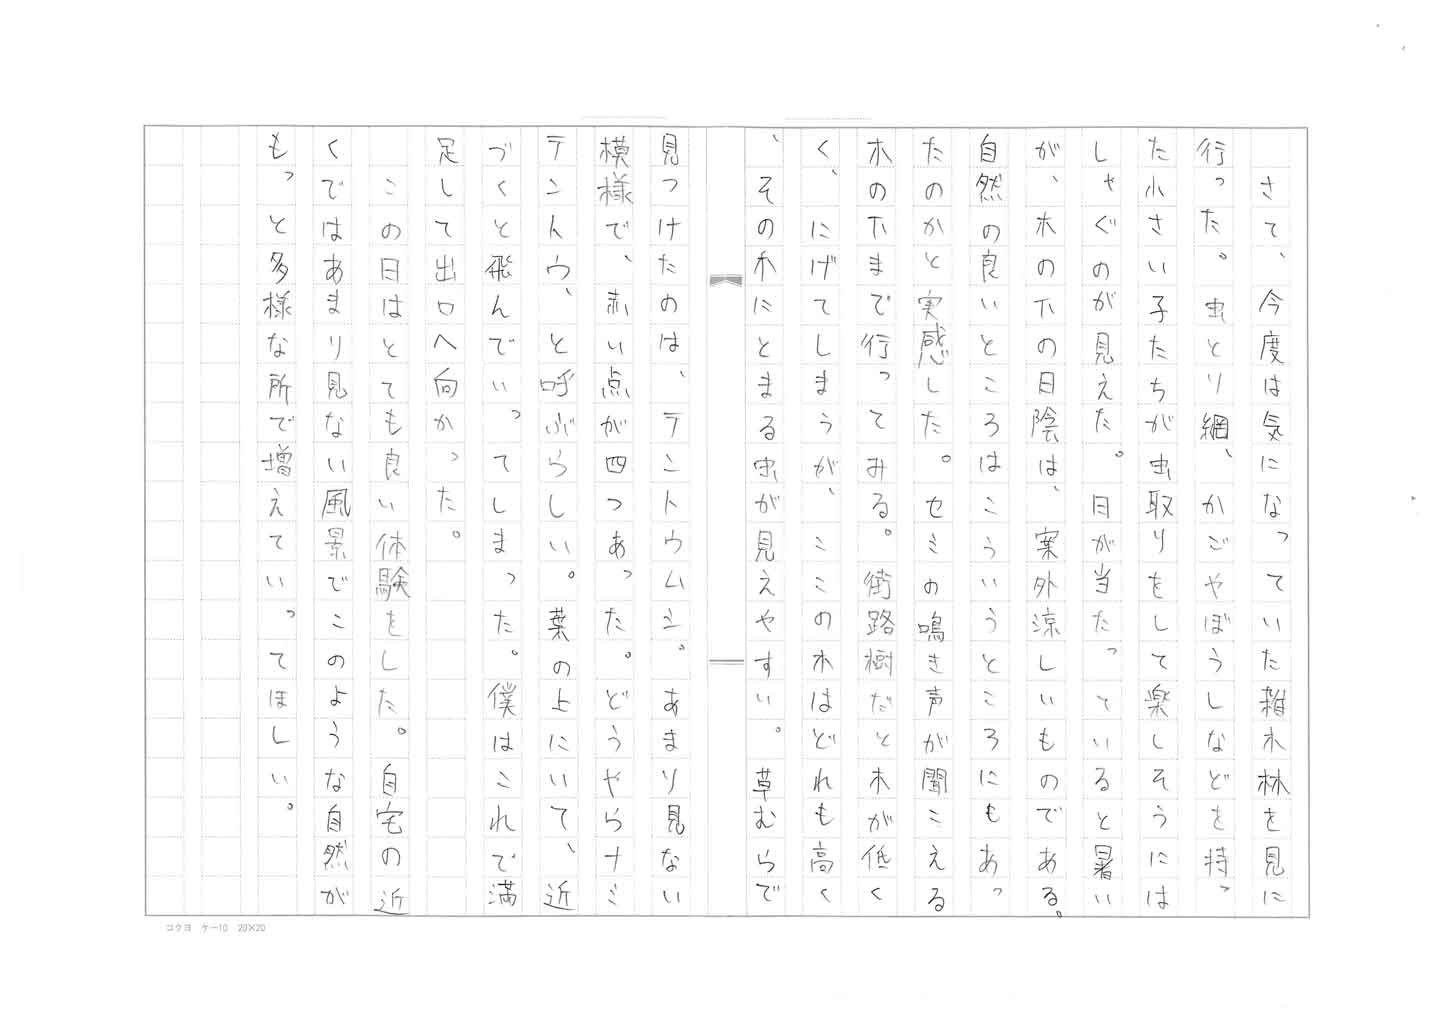 さて、今度は気になっていた雑木林を見に
行った。虫とり網、かごやぼうしなどを持っ
た小さい子たちが虫取りをして楽しそうには
しゃぐのが見えた。日が当たっていると暑い
が、木の下の日陰は、案外涼しいものである。
自然の良いところはこういうところにもあっ
たのかと実感した。セミの鳴き声が聞こえる
木の下まで行ってみる。街路樹だと木が低く
く、にげてしまうが、ここの木はどれも高く
、その木にとまる虫が見えやすい。草むらで
見つけたのは、テントウムシ。あまり見ない
模様で、赤い点が四つあった。どうやらナミ
テントウ、と呼ぶらしい。葉の上にいて、近
づくと飛んでいってしまった。僕はこれで満
足して出口へ向かった。
この日はとても良い体験をした。自宅の近
くではあまり見ない風景でこのような自然が
もっと多様な所で増えていってほしい。
コクヨ ケー10 20×20